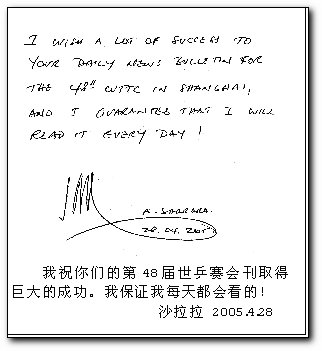 I WISH A LOT OF SUCCESS TO
YOUR DAILY NEWS BULLETIN FOR
THE 48th WTTC IN SHANGHAI,
AND I GUARANTEE THAT I WILL
READ IT EVERY DAY!
A. SHARARA
28.04.2005
我祝你们的第 48 届世乒赛会刊取得
巨大的成功。我保证我每天都会看的！
沙拉拉 2005.4.28